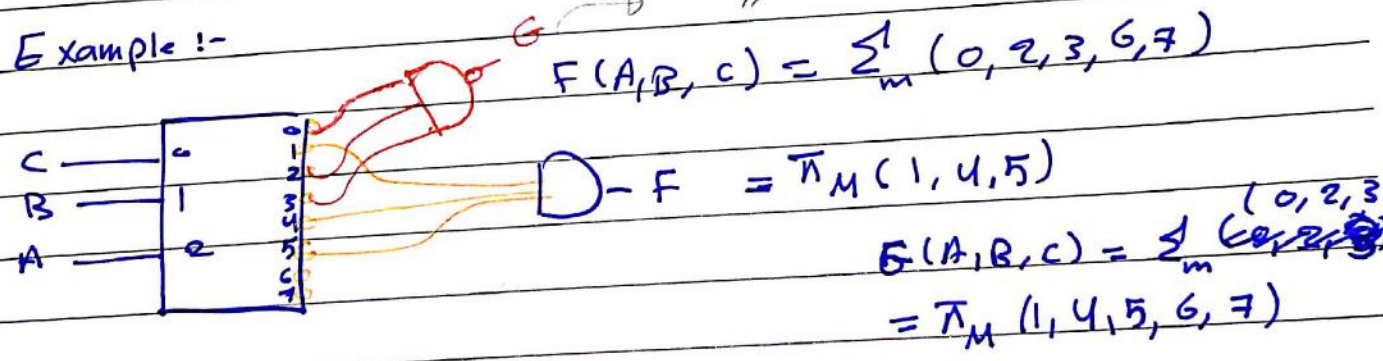 Example :-
G
F(A,B,C) = Σm (0,2,3,6,7)
C 0
B 1
A 2
0
1
2
3
4
5
6
7
F = πM (1,4,5)
G(A,B,C) = Σm (0,2,3
= πM (1,4,5,6,7)